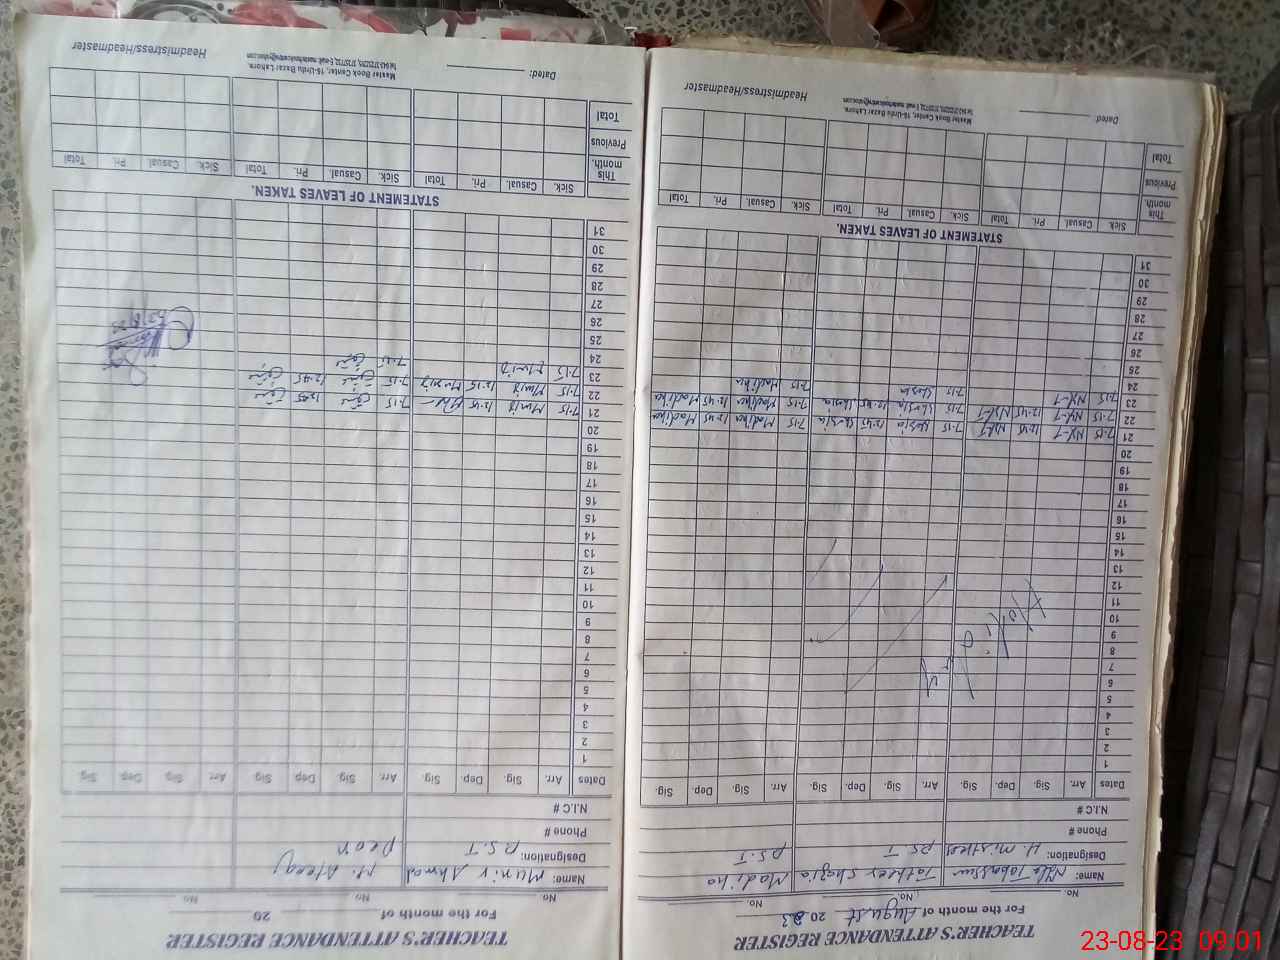 TEACHER'S ATTENDANCE REGISTER
For the month of August 2023
No. No. No.
Name: Tabassum Tatheer Shazia Madiha
Designation: H. Mistress PST P.S.T
Phone #
N.I.C #
Dates Arr. Sig. Dep. Sig. Arr. Sig. Dep. Sig. Arr. Sig. Dep. Sig.
1
2
3
4
5
6
7
8
9
10
11
12
13
14
15
16
17
18
19
20
21 7.15 12.45 7.15 12.45 7.15 Madiha 12.45 Madiha
22 7.15 12.45 7.15 12.45 7.15 Madiha 12.45 Madiha
23 7.15 7.15 7.15 Madiha
24
25
26
27
28
29
30
31
STATEMENT OF LEAVES TAKEN.
Sick. Casual. Pri. Total Sick. Casual. Pri. Total Sick. Casual. Pri. Total
This month.
Previous
Total
Dated:
Master Book Center, 16-Urdu Bazar Lahore.
Headmistress/Headmaster
TEACHER'S ATTENDANCE REGISTER
For the month of 20
No. No. No.
Name: Munir Ahmad M. Ateeq
Designation: P.S.T Peon
Phone #
N.I.C #
Dates Arr. Sig. Dep Sig. Arr. Sig. Dep Sig. Arr. Sig. Dep Sig.
1
2
3
4
5
6
7
8
9
10
11
12
13
14
15
16
17
18
19
20
21 7.15 Munir 12.45 7.15 12.45
22 7.15 Munir 12.15 Munir 7.15 12.45
23 7.15 Munir 7.15
24
25
26
27
28
29
30
31
STATEMENT OF LEAVES TAKEN.
Sick. Casual. Pri. Total Sick. Casual. Pri. Total Sick. Casual. Pri. Total
This month.
Previous
Total
Dated:
Master Book Center, 16-Urdu Bazar Lahore.
Headmistress/Headmaster
23-08-23 09:01